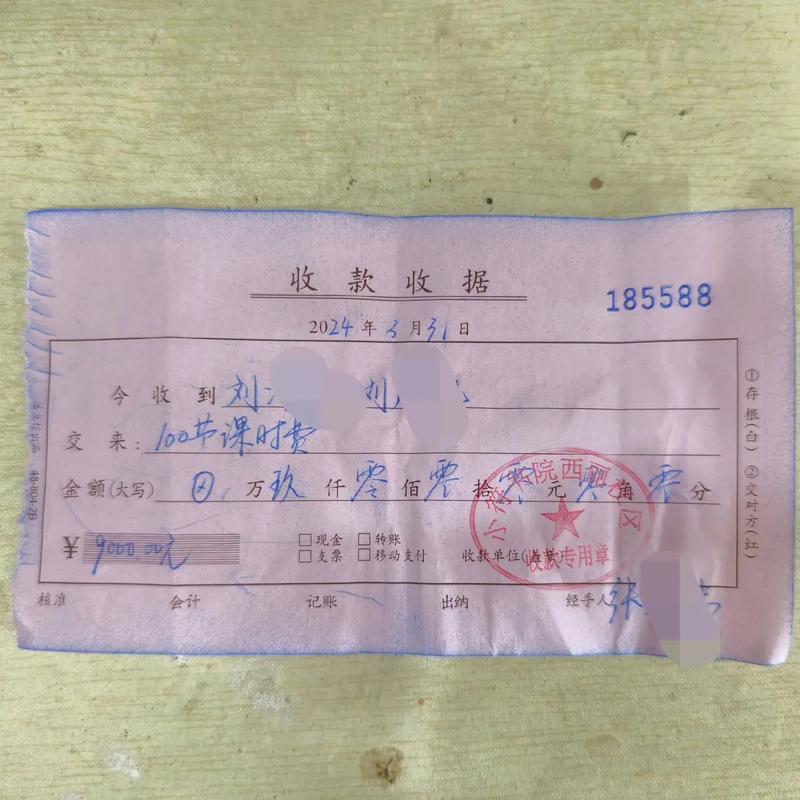 收款收据
185588
2024年3月31日
今收到 刘 刘
交来：100节课时费
金额(大写) ⊗万玖仟零佰零拾零元零角零分
¥ 9000.00元
□现金 □转账
□支票 □移动支付
收款单位(盖章)
核准 会计 记账 出纳 经手人 张
①存根(白) ②交对方(红)
院西
区
收款专用章
48-604-2B